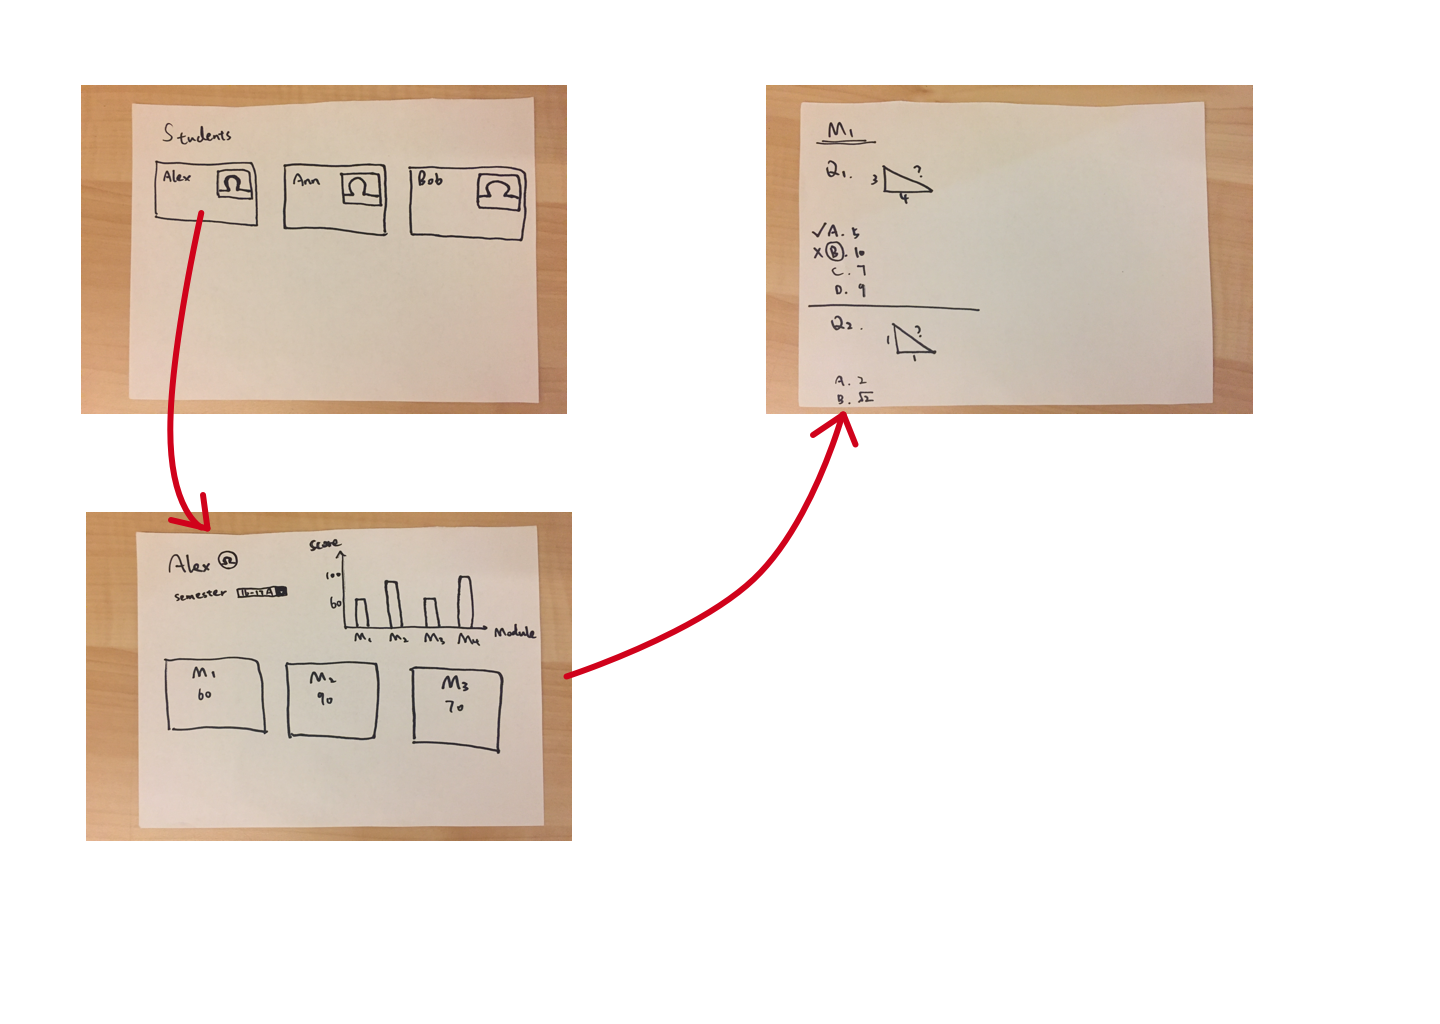 Students
Alex
Ann
Bob
Alex
semester 16-17A
Score
100
60
M1 M2 M3 M4 Module
M1
60
M2
90
M3
70
M1
Q1.
?
3
4
✓A. 5
X B. 10
C. 7
D. 9
Q2.
?
1
1
A. 2
B. √2